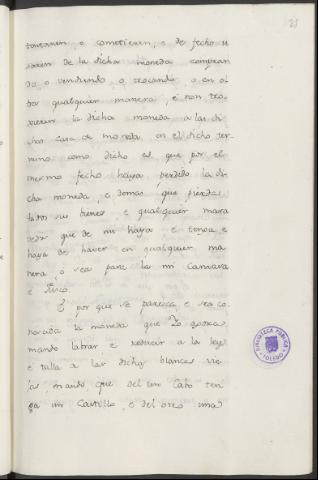 23
touieren, o cometieren, e de fecho u
saren de la dicha moneda compran
do o vendiendo, o trocando, o en ot
tra qualquier manera, e non tro
xieren la dicha moneda a las di
chas casas de moneda en el dicho ter
mino como dicho es, que por el
mesmo fecho haya perdido la di
cha moneda, e demas que pierda
todos sus bienes e qualquier mara
vedis que de mi haya e tenga e
haya de haver en qualquier ma
nera, e sea para la mi Camara
e Fisco.
E por que se parezca e sea co
la moneda que Yo
mando labrar e reducir a la ley
e talla a las dichas blancas vie
jas, mando, que del un cabo ten
ga un Castillo, e del otro una
BIBLIOTECA PUBLICA
TOLEDO